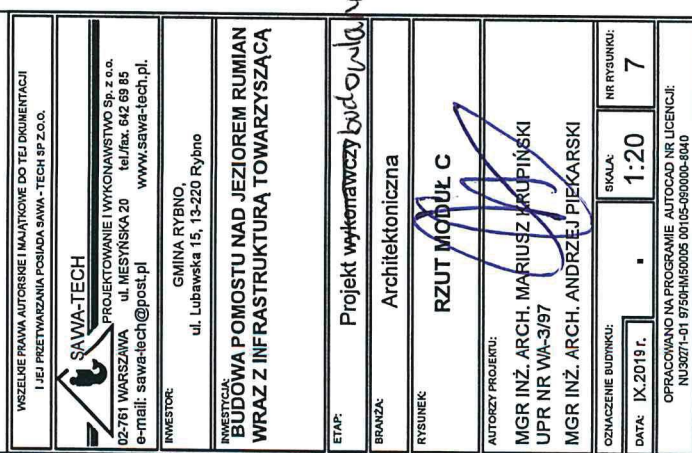 WSZELKIE PRAWA AUTORSKIE I MAJĄTKOWE DO TEJ DKUMENTACJI
I JEJ PRZETWARZANIA POSIADA SAWA - TECH SP Z.O.O.
SAWA-TECH
PROJEKTOWANIE I WYKONAWSTWO Sp. z o.o.
02-761 WARSZAWA ul. MESYŃSKA 20 tel./fax. 642 69 85
e-mail: sawa-tech@post.pl www.sawa-tech.pl.
INWESTOR:
GMINA RYBNO,
ul. Lubawska 15, 13-220 Rybno
INWESTYCJA:
BUDOWA POMOSTU NAD JEZIOREM RUMIAN
WRAZ Z INFRASTRUKTURĄ TOWARZYSZĄCĄ
ETAP:
Projekt wykonawczy budowlany
BRANŻA:
Architektoniczna
RYSUNEK:
RZUT MODUŁ C
AUTORZY PROJEKTU:
MGR INŻ. ARCH. MARIUSZ KRUPIŃSKI
UPR NR WA-3/97
MGR INŻ. ARCH. ANDRZEJ PIEKARSKI
OZNACZENIE BUDYNKU:
SKALA:
NR RYSUNKU:
DATA: IX.2019r.
-
1:20
7
OPRACOWANO NA PROGRAMIE AUTOCAD NR LICENCJI:
NU30271-D1 9750HM50005 00105-090000-8040